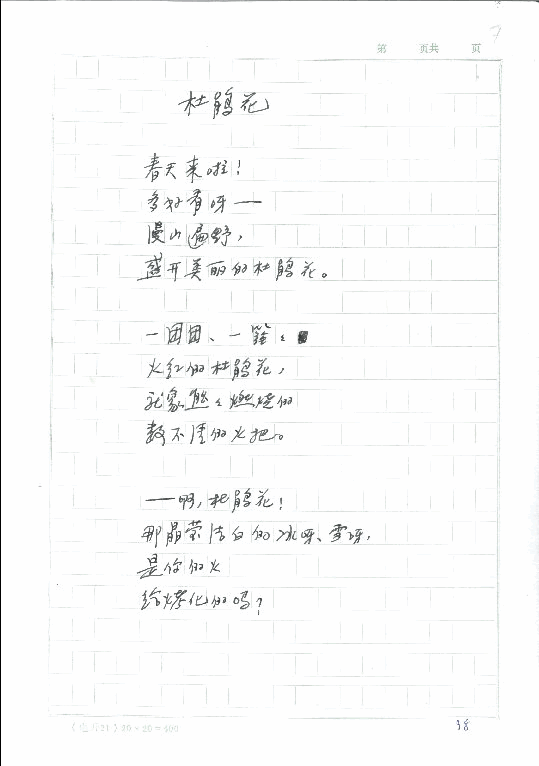 7
第 页共 页
杜鹃花
春天来啦!
多好看呀——
漫山遍野,
盛开美丽的杜鹃花。
一团团、一簇〻
火红的杜鹃花,
就象熊〻燃烧的
数不清的火把。
——啊,杜鹃花!
那晶莹洁白的冰呀、雪呀,
是你的火
给烤化的吗?
20×20=400
38